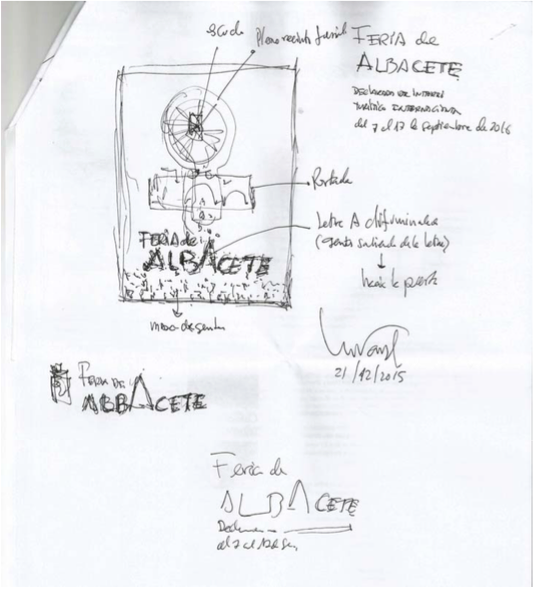 escudo
Plano recinto ferial
FERIA de
ALBACETE
DECLARADA DE INTERÉS
TURÍSTICO INTERNACIONAL
del 7 al 17 de septiembre de 2016
Portada
FERIA de
ALBACETE
Letra A difuminada
(gente saliendo de la letra)
hacia la puerta
masa de gente
21/12/2015
FERIA DE
ALBACETE
Feria de
ALBACETE